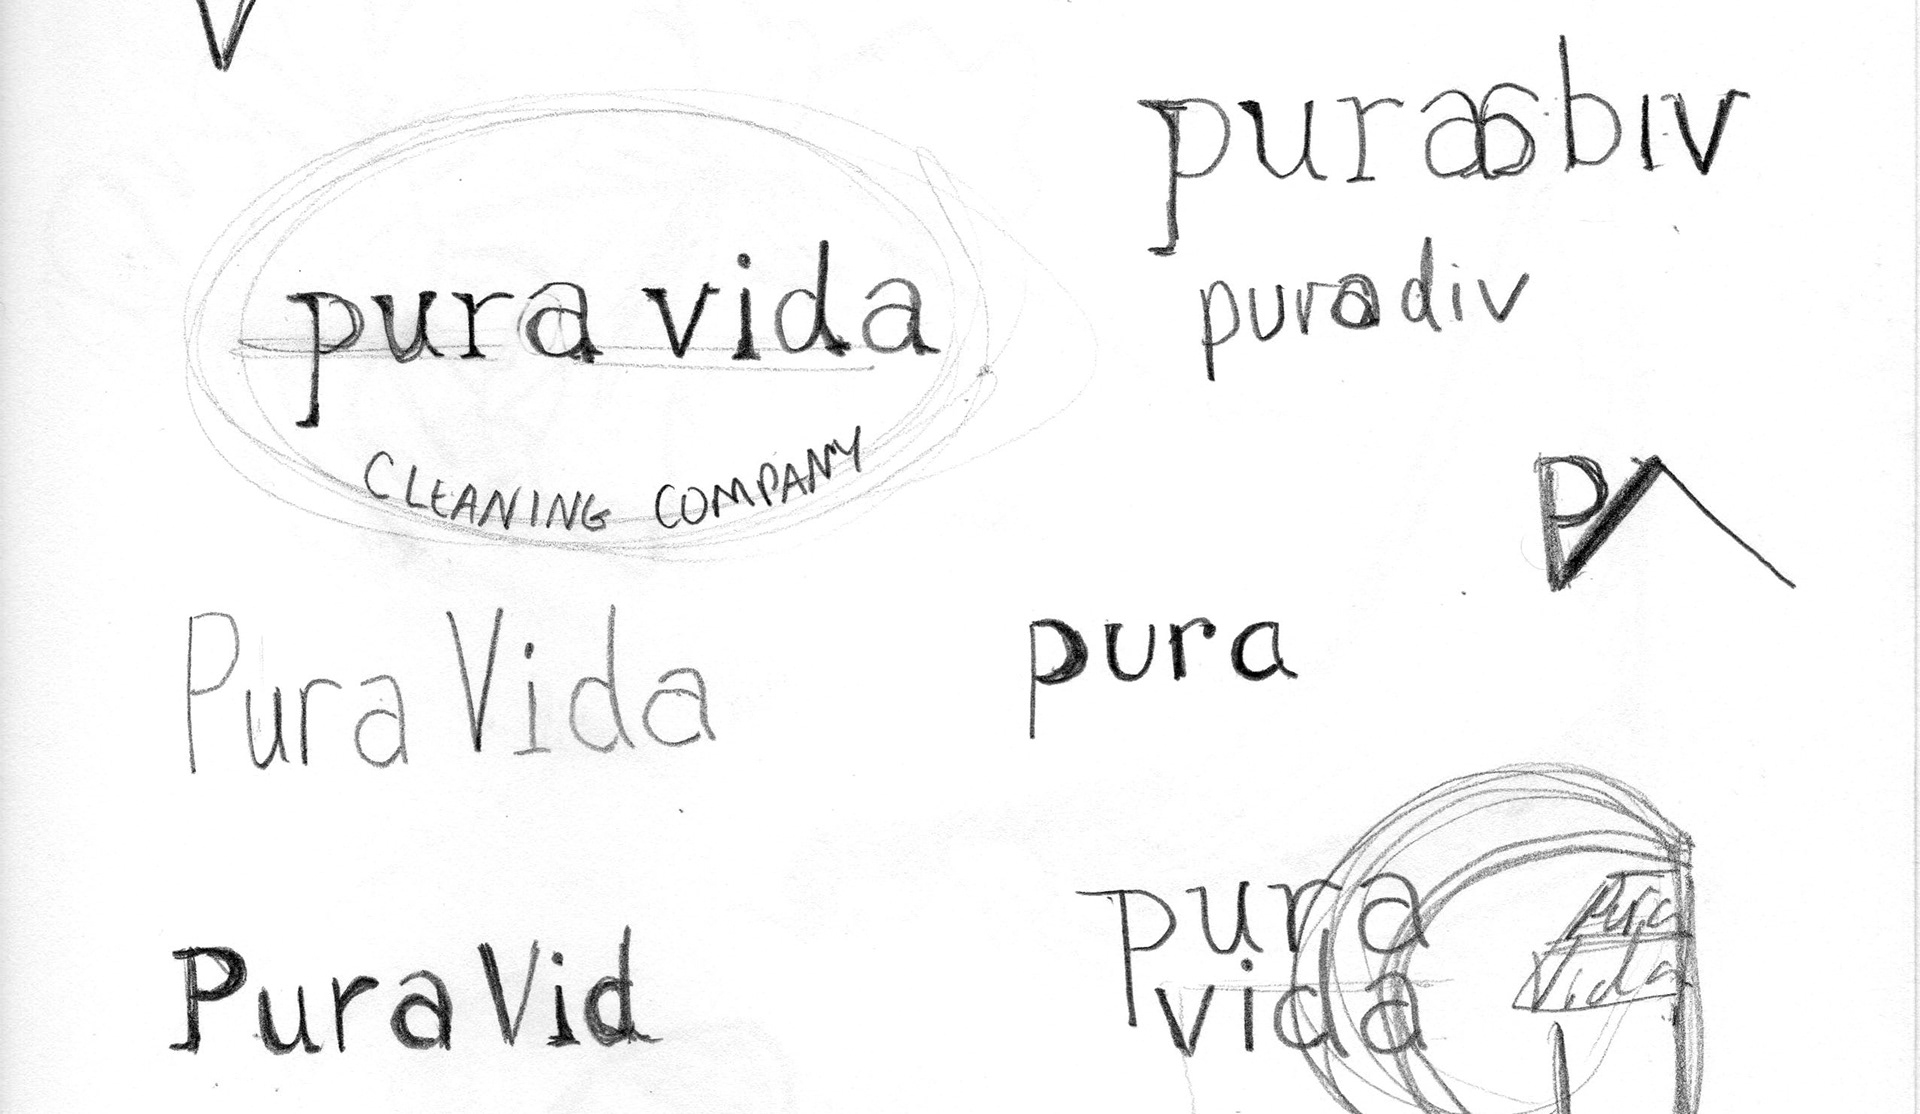 V
pura vida
CLEANING COMPANY
Pura Vida
Pura Vid
puradiv
P
pura
pura
vida
pura
Vida